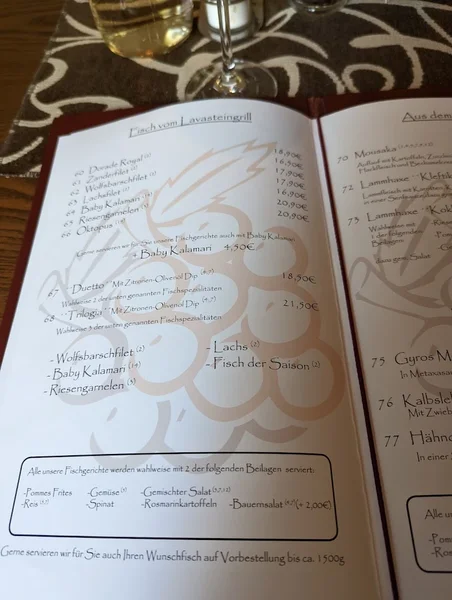 Fisch vom Lavasteingrill
60 Dorade Royal 18,90€
61 Zanderfilet 16,50€
62 Wolfsbarschfilet 17,90€
63 Lachsfilet 17,90€
64 Baby Kalamari 16,90€
65 Riesengarnelen 20,90€
66 Oktopus 20,90€
Gerne servieren wir für Sie unsere Fischgerichte auch mit Baby Kalamari
+ Baby Kalamari 4,50€
67 "Duetto" Mit Zitronen-Olivenöl Dip 18,50€
Wahlweise 2 der unten genannten Fischspezialitäten
68 "Trilogia" Mit Zitronen-Olivenöl Dip 21,50€
Wahlweise 3 der unten genannten Fischspezialitäten
- Wolfsbarschfilet (2)
- Baby Kalamari (14)
- Riesengarnelen
- Lachs (2)
- Fisch der Saison (2)
Alle unsere Fischgerichte werden wahlweise mit 2 der folgenden Beilagen serviert:
-Pommes Frites -Gemüse -Gemischter Salat
-Reis -Spinat -Rosmarinkartoffeln -Bauernsalat (+ 2,00€)
Gerne servieren wir für Sie auch Ihren Wunschfisch auf Vorbestellung bis ca. 1500g
Aus dem
70 Mousaka
Auflauf mit Kartoffeln,
Hackfleisch und
72 Lammhaxe "Kleftik
73 Lammhaxe
Wahlweise mit
Beilagen
75 Gyros M
In Metaxasa
76 Kalbsleb
Mit Zwieb
77 Hähnc
In einer
Alle uns
-Pom
-Ros